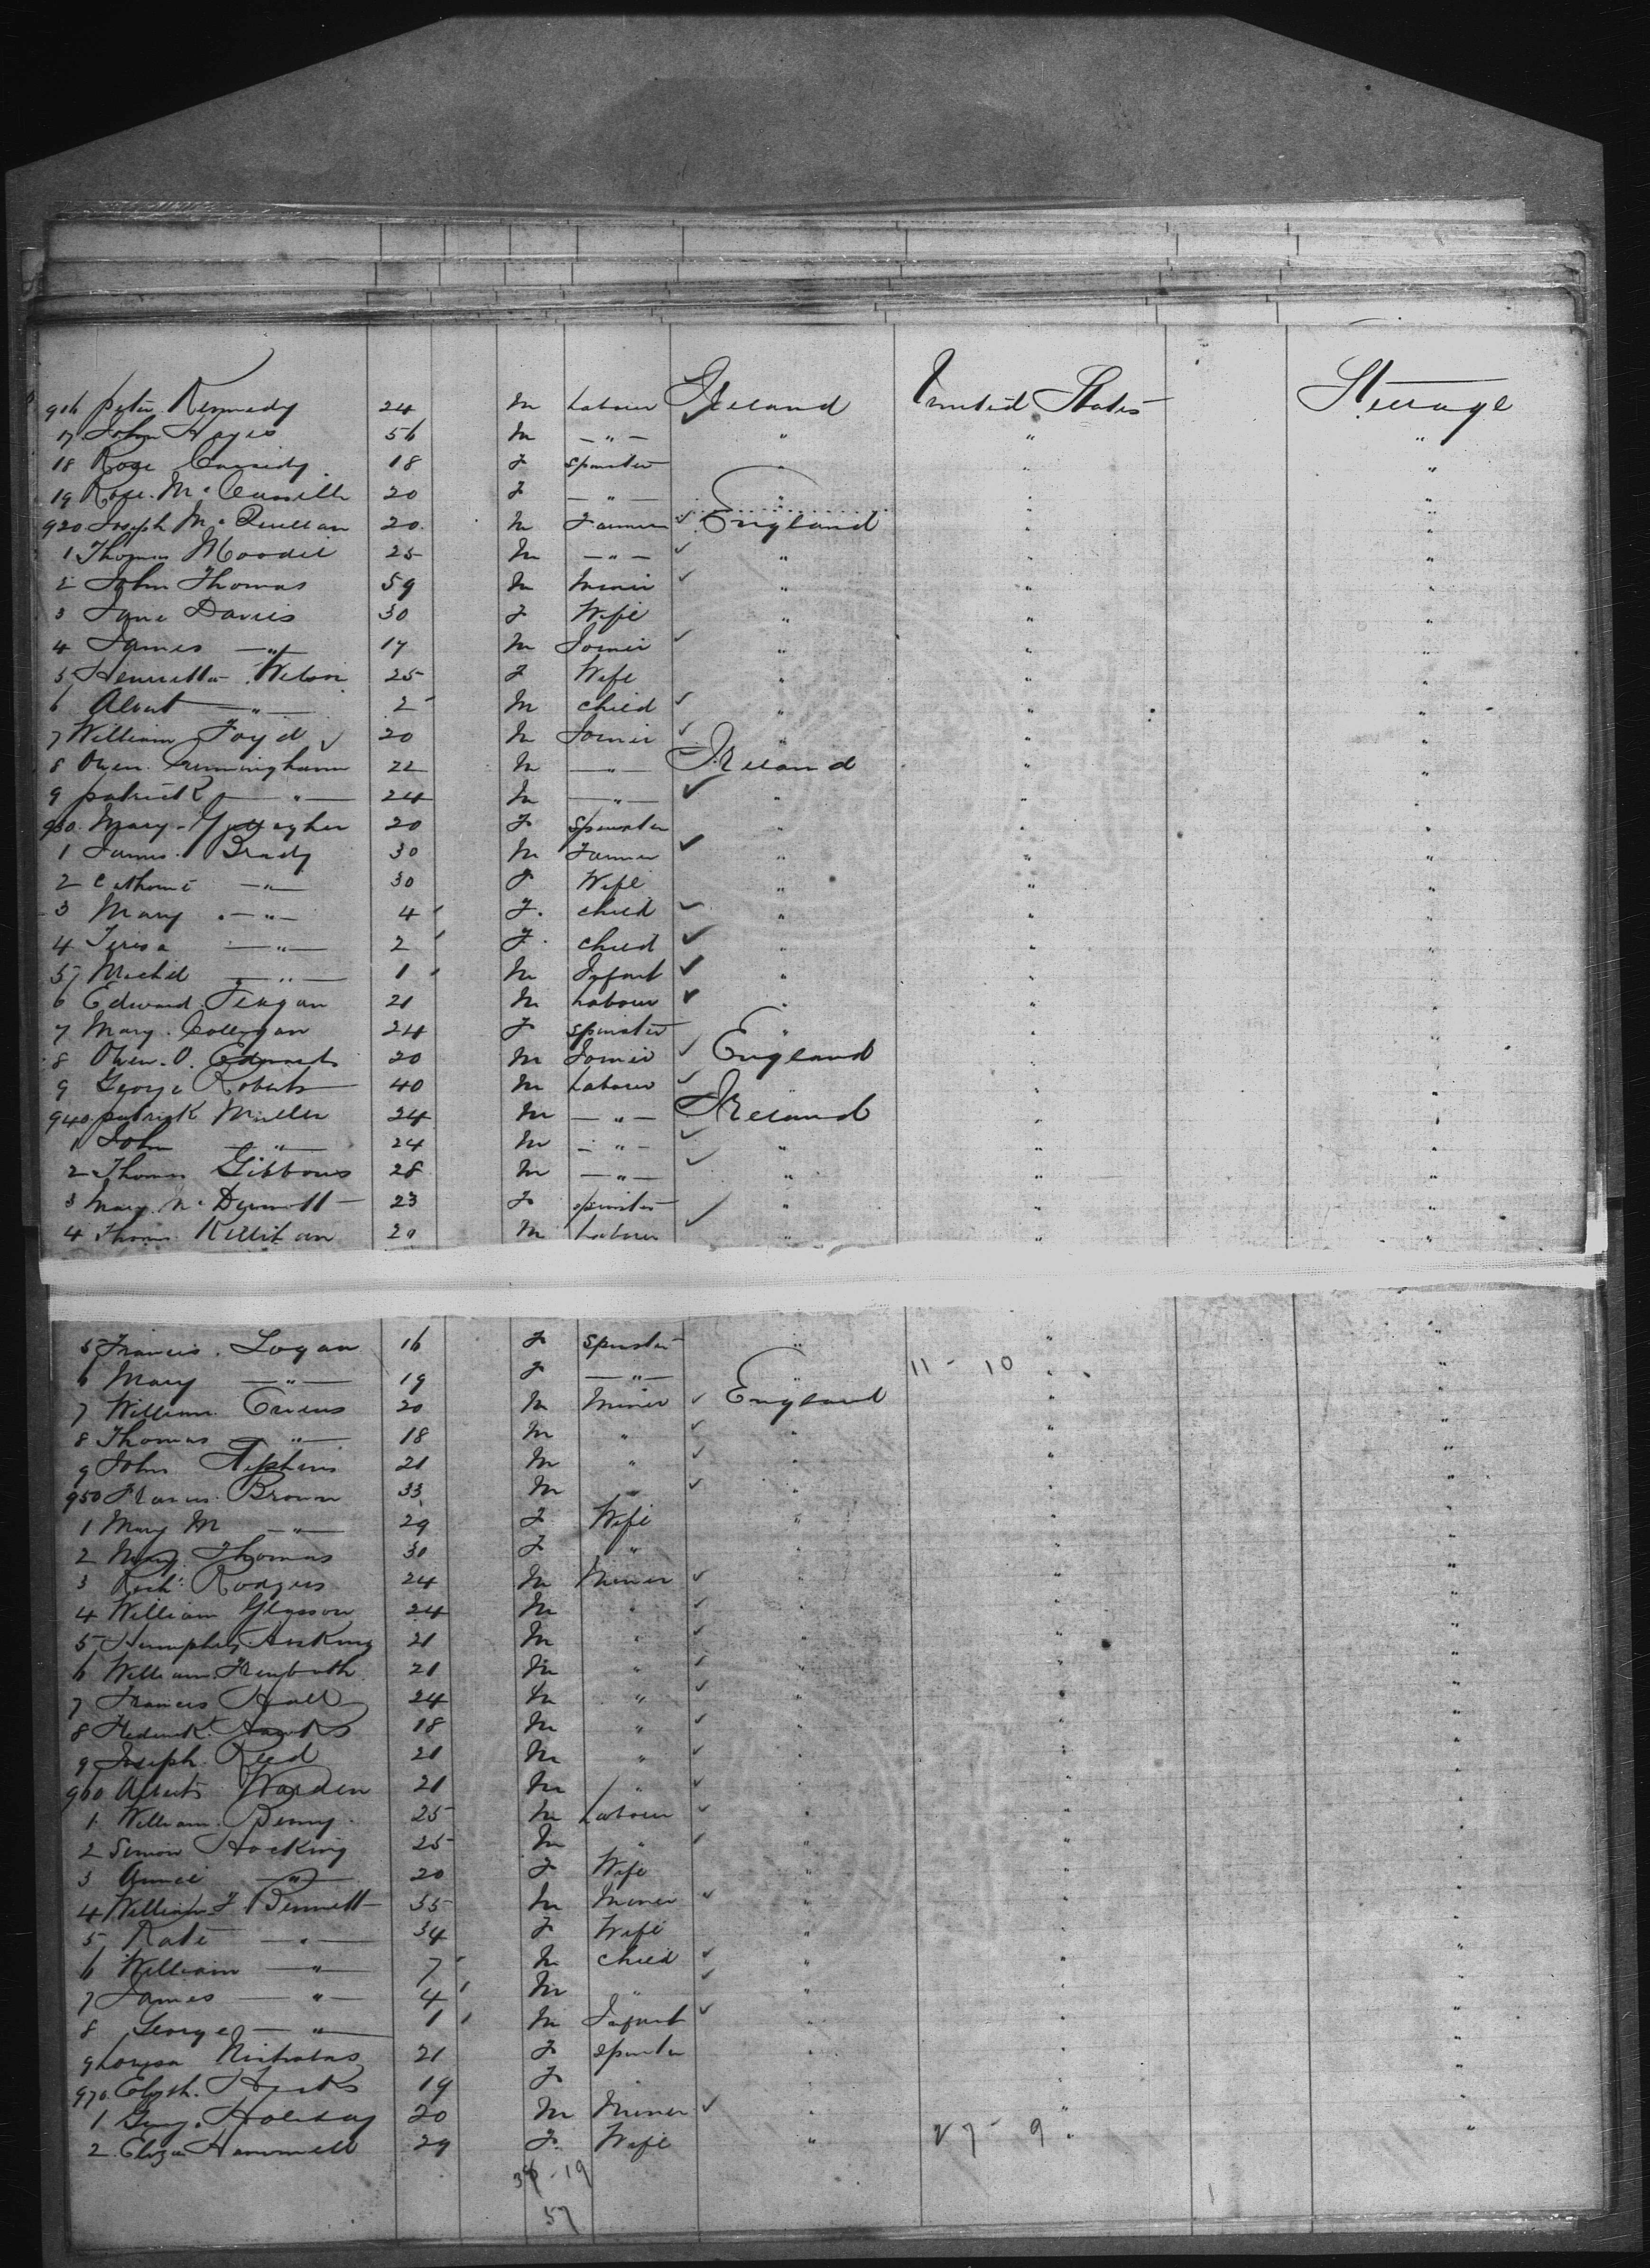 916 Peter Kennedy 24 M Labourer Ireland United States Steerage
17 John Hayes 56 M — " — " " "
18 Rose Cassidy 18 F Spinster " " "
19 Rose Mc 20 F — " — " " "
920 Joseph McQuillan 20 M Farmer England " "
1 Thomas Moodie 25 M — " — " " "
2 John Thomas 59 M Miner " " "
3 Jane Davies 30 F Wife " " "
4 James — " — 17 M Joiner " " "
5 Henrietta Wilson 25 F Wife " " "
6 Albert — " — 2 M child " " "
7 William 20 M Joiner " " "
8 Owen Cunningham 22 M — " — Ireland " "
9 patrick — " — 24 M — " — " " "
930 Mary Gallagher 20 F Spinster " " "
1 James Brady 30 M Farmer " " "
2 Catherine — " — 30 F Wife " " "
3 Mary — " — 4 F child " " "
4 Teresa — " — 2 F child " " "
5 Michel — " — 1 M Infant " " "
6 Edward Feagan 21 M Labourer " " "
7 Mary Colligan 24 F spinster " " "
8 Owen O. Edwards 20 M Joiner England " "
9 George Roberts 40 M Labourer " " "
940 patrick Muller 24 M — " — Ireland " "
1 John — " — 24 M — " — " " "
2 Thomas Gibbons 28 M — " — " " "
3 Mary McDermott 23 F spinster " " "
4 Thomas 20 M Labourer " " "
5 Francis Logan 16 F Spinster " " "
6 Mary — " — 19 F — " — " 11 - 10 " "
7 William 20 M Miner England " "
8 Thomas — " — 18 M " " " "
9 John Stephens 21 M " " " "
950 Francis Brown 33 M " " " "
1 Mary M — " — 29 F Wife " " "
2 Mary Thomas 30 F " " " "
3 Richd Rodgers 24 M Miner " " "
4 William Glasson 24 M " " " "
5 Humphrey Hosking 21 M " " " "
6 William 21 M " " " "
7 Francis Hall 24 M " " " "
8 Frederick 18 M " " " "
9 Joseph Reed 21 M " " " "
960 Albert Warden 21 M " " " "
1 William Penny 25 M Labourer " " "
2 Simon Hocking 25 M " " " "
3 Annie — " — 20 F Wife " " "
4 William F Bennett 35 M Miner " " "
5 Kate — " — 34 F Wife " " "
6 William — " — 7 M child " " "
7 James — " — 4 M " " " "
8 George — " — 1 M Infant " " "
9 Nicholas 21 F spinster " " "
970 Elizth. 19 F " " " "
1 Holiday 20 M Miner " " "
2 Eliza Hammill 29 F Wife " 27 - 9 " "
38 - 19
57